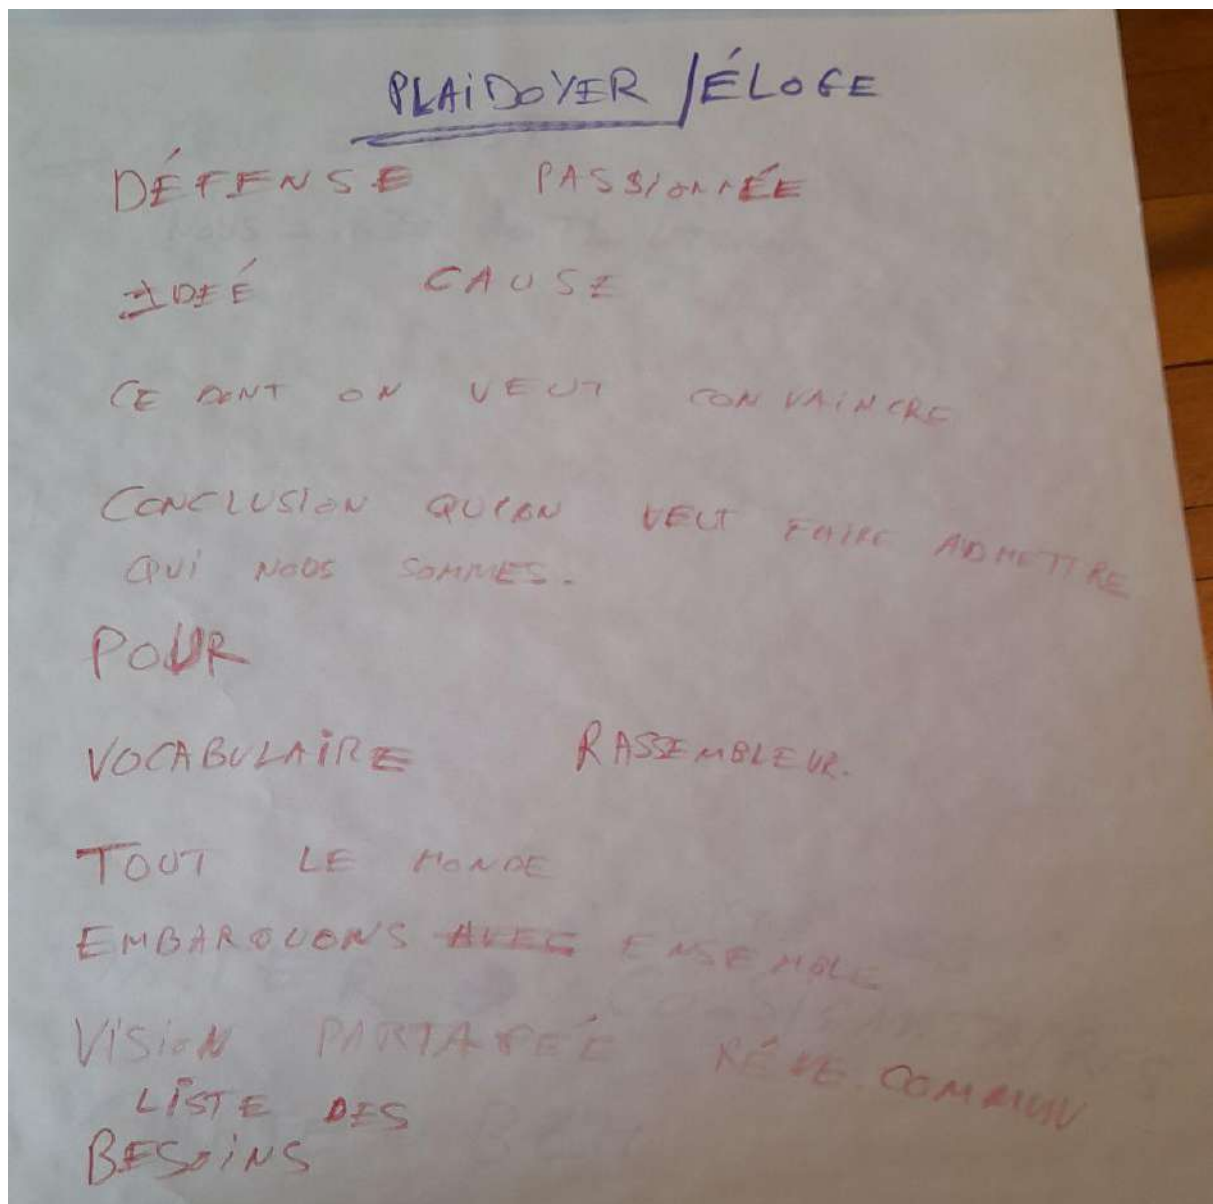 PLAIDOYER / ÉLOGE
DÉFENSE PASSIONNÉE
IDEÉ CAUSE
CE DONT ON VEUT CONVAINCRE
CONCLUSION QU'ON VEUT FAIRE ADMETTRE
QUI NOUS SOMMES.
POUR
VOCABULAIRE RASSEMBLEUR.
TOUT LE MONDE
EMBARQUONS AVEC ENSEMBLE
VISION PARTAGEÉ RÊVE COMMUN
LISTE DES
BESOINS